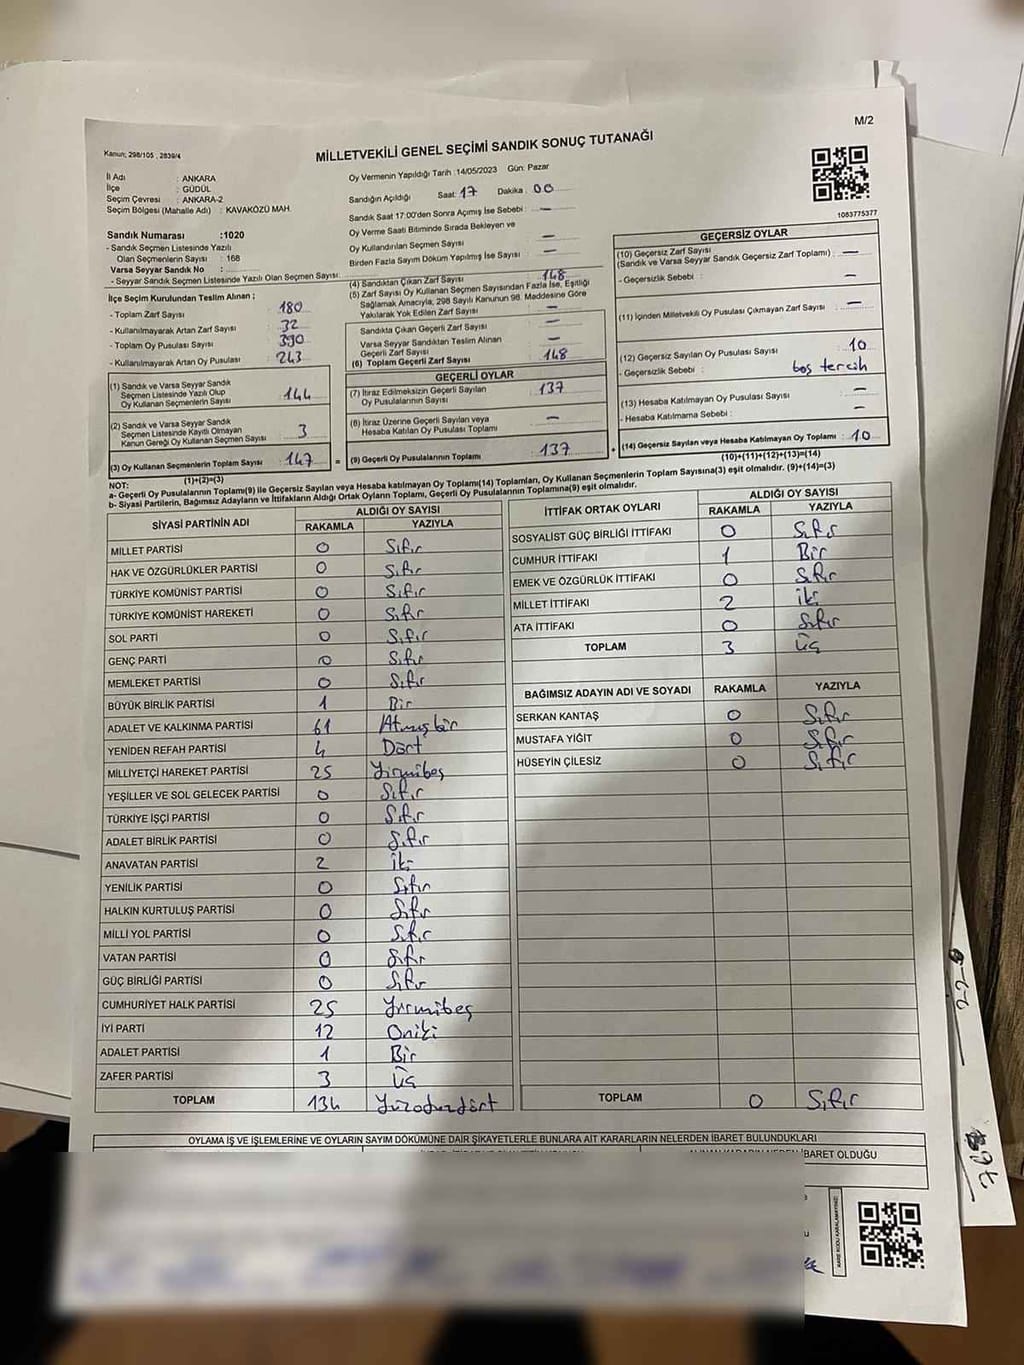 M/2
Kanun; 298/105 , 2839/4
MİLLETVEKİLİ GENEL SEÇİMİ SANDIK SONUÇ TUTANAĞI
İl Adı : ANKARA
İlçe : GÜDÜL
Seçim Çevresi : ANKARA-2
Seçim Bölgesi (Mahalle Adı) : KAVAKÖZÜ MAH.
Sandık Numarası :1020
- Sandık Seçmen Listesinde Yazılı
Olan Seçmenlerin Sayısı : 168
Varsa Seyyar Sandık No :
- Seyyar Sandık Seçmen Listesinde Yazılı Olan Seçmen Sayısı:
Oy Vermenin Yapıldığı Tarih :14/05/2023 Gün: Pazar
Sandığın Açıldığı Saat: 17 Dakika : 00
Sandık Saat 17:00'den Sonra Açımış İse Sebebi : —
Oy Verme Saati Bitiminde Sırada Bekleyen ve
Oy Kullandırılan Seçmen Sayısı —
Birden Fazla Sayım Döküm Yapılmış İse Sayısı —
1083775377
İlçe Seçim Kurulundan Teslim Alınan ;
- Toplam Zarf Sayısı : 180
- Kullanılmayarak Artan Zarf Sayısı : 32
- Toplam Oy Pusulası Sayısı : 390
- Kullanılmayarak Artan Oy Pusulası : 243
(1) Sandık ve Varsa Seyyar Sandık
Seçmen Listesinde Yazılı Olup
Oy Kullanan Seçmenlerin Sayısı : 144
(2) Sandık ve Varsa Seyyar Sandık
Seçmen Listesinde Kayıtlı Olmayan
Kanun Gereği Oy Kullanan Seçmen Sayısı : 3
(3) Oy Kullanan Seçmenlerin Toplam Sayısı : 147
(1)+(2)=(3)
(4) Sandıktan Çıkan Zarf Sayısı : 148
(5) Zarf Sayısı Oy Kullanan Seçmen Sayısından Fazla İse, Eşitliği
Sağlamak Amacıyla; 298 Sayılı Kanunun 98. Maddesine Göre
Yakılarak Yok Edilen Zarf Sayısı : —
Sandıkta Çıkan Geçerli Zarf Sayısı : —
Varsa Seyyar Sandıktan Teslim Alınan
Geçerli Zarf Sayısı : —
(6) Toplam Geçerli Zarf Sayısı : 148
GEÇERLİ OYLAR
(7) İtiraz Edilmeksizin Geçerli Sayılan
Oy Pusulalarının Sayısı : 137
(8) İtiraz Üzerine Geçerli Sayılan veya
Hesaba Katılan Oy Pusulası Toplamı : —
= (9) Geçerli Oy Pusulalarının Toplamı : 137
GEÇERSİZ OYLAR
(10) Geçersiz Zarf Sayısı
(Sandık ve Varsa Seyyar Sandık Geçersiz Zarf Toplamı) : —
- Geçersizlik Sebebi : —
(11) İçinden Milletvekili Oy Pusulası Çıkmayan Zarf Sayısı : —
(12) Geçersiz Sayılan Oy Pusulası Sayısı : 10
- Geçersizlik Sebebi : boş tercih
(13) Hesaba Katılmayan Oy Pusulası Sayısı : —
- Hesaba Katılmama Sebebi : —
+ (14) Geçersiz Sayılan veya Hesaba Katılmayan Oy Toplamı : 10
(10)+(11)+(12)+(13)=(14)
NOT:
a- Geçerli Oy Pusulalarının Toplamı(9) ile Geçersiz Sayılan veya Hesaba katılmayan Oy Toplamı(14) Toplamları, Oy Kullanan Seçmenlerin Toplam Sayısına(3) eşit olmalıdır. (9)+(14)=(3)
b- Siyasi Partilerin, Bağımsız Adayların ve İttifakların Aldığı Ortak Oyların Toplamı, Geçerli Oy Pusulalarının Toplamına(9) eşit olmalıdır.
SİYASİ PARTİNİN ADI ALDIĞI OY SAYISI
RAKAMLA YAZIYLA
MİLLET PARTİSİ 0 Sıfır
HAK VE ÖZGÜRLÜKLER PARTİSİ 0 Sıfır
TÜRKİYE KOMÜNİST PARTİSİ 0 Sıfır
TÜRKİYE KOMÜNİST HAREKETİ 0 Sıfır
SOL PARTİ 0 Sıfır
GENÇ PARTİ 0 Sıfır
MEMLEKET PARTİSİ 0 Sıfır
BÜYÜK BİRLİK PARTİSİ 1 Bir
ADALET VE KALKINMA PARTİSİ 61 Atmışbir
YENİDEN REFAH PARTİSİ 4 Dört
MİLLİYETÇİ HAREKET PARTİSİ 25 Yirmibeş
YEŞİLLER VE SOL GELECEK PARTİSİ 0 Sıfır
TÜRKİYE İŞÇİ PARTİSİ 0 Sıfır
ADALET BİRLİK PARTİSİ 0 Sıfır
ANAVATAN PARTİSİ 2 İki
YENİLİK PARTİSİ 0 Sıfır
HALKIN KURTULUŞ PARTİSİ 0 Sıfır
MİLLİ YOL PARTİSİ 0 Sıfır
VATAN PARTİSİ 0 Sıfır
GÜÇ BİRLİĞİ PARTİSİ 0 Sıfır
CUMHURİYET HALK PARTİSİ 25 Yirmibeş
İYİ PARTİ 12 Oniki
ADALET PARTİSİ 1 Bir
ZAFER PARTİSİ 3 Üç
TOPLAM 134 Yüzotuzdört
İTTİFAK ORTAK OYLARI ALDIĞI OY SAYISI
RAKAMLA YAZIYLA
SOSYALİST GÜÇ BİRLİĞİ İTTİFAKI 0 Sıfır
CUMHUR İTTİFAKI 1 Bir
EMEK VE ÖZGÜRLÜK İTTİFAKI 0 Sıfır
MİLLET İTTİFAKI 2 iki
ATA İTTİFAKI 0 Sıfır
TOPLAM 3 Üç
BAĞIMSIZ ADAYIN ADI VE SOYADI RAKAMLA YAZIYLA
SERKAN KANTAŞ 0 Sıfır
MUSTAFA YİĞİT 0 Sıfır
HÜSEYİN ÇİLESİZ 0 Sıfır
TOPLAM 0 Sıfır
OYLAMA İŞ VE İŞLEMLERİNE VE OYLARIN SAYIM DÖKÜMÜNE DAİR ŞİKAYETLERLE BUNLARA AİT KARARLARIN NELERDEN İBARET BULUNDUKLARI
İBARET OLDUĞU